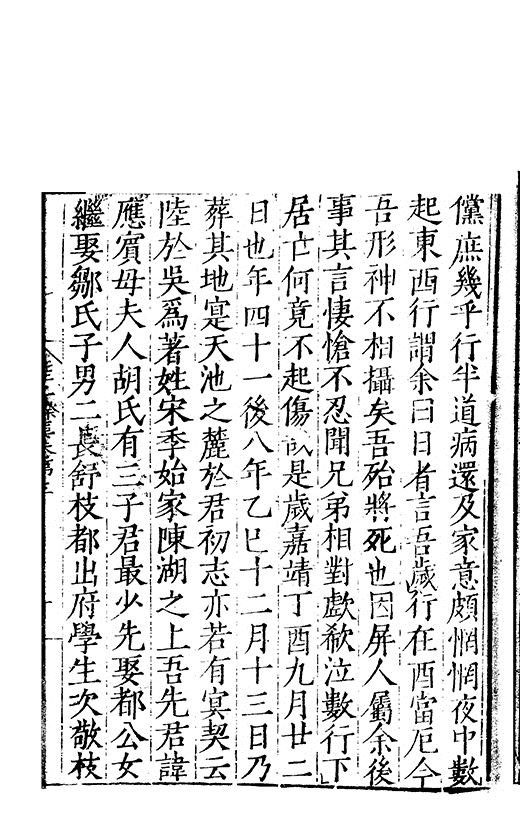 儻庶幾乎行半道病還及家意頗惘惘夜中數
起東西行謂余曰日者言吾歲行在酉當厄今
吾形神不相攝矣吾殆將死也因屏人屬余後
事其言悽愴不忍聞兄弟相對歔欷泣數行下
居亡何竟不起傷哉是歲嘉靖丁酉九月廿二
日也年四十一後八年乙巳十二月十三日乃
葬其地寔天池之麓於君初志亦若有冥契云
陸於吳爲著姓宋季始家陳湖之上吾先君諱
應賓母夫人胡氏有三子君最少先娶都公女
繼娶鄒氏子男二長舒枝都出府學生次敬枝